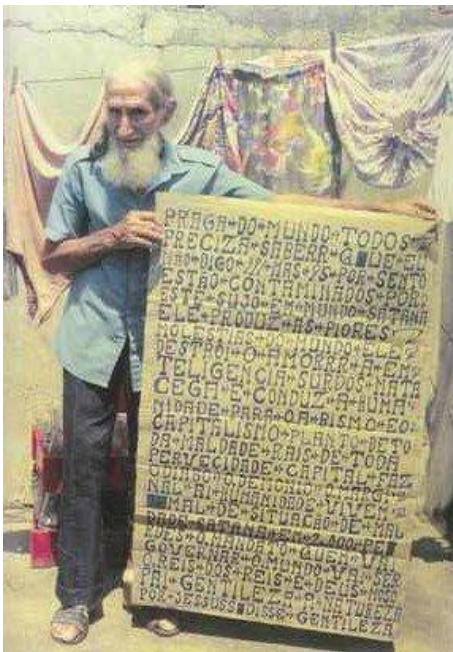 PRAGA DO MUNDO TODOS
PRECIZA SABERR QUE EU
NÃO DIGO MAS 95 POR SENTO
ESTÃO CONTAMINADOS POR
ESTE SUJO EM MUNDO SATANA
ELE PRODUZ AS PIORES
MOLESTIAS DO MUNDO ELE
DESTROI O AMORRR A EN
TELIGENCIA SURDOS MATA
CEGA E CONDUZ A HUMA
NIDADE PARA O ABISMO E O
CAPITALISMO PLANTO DE TO
DA MALDADE RAIS DE TODA
PERVECIDADE CAPITAL FAZ
MARGI
NAL A HUMANIDADE VIVEM
MAL DE SITUACÃO DE MAL
SATANA EM 2.000 PE
O MANDATO QUEM VAI
GOVERNAR O MUNDO VAI SER
REIS DOS REIS E DEUS NOSO
PAI GENTILEZA A NATUREZA
POR JESSUSS DISSE GENTILEZA